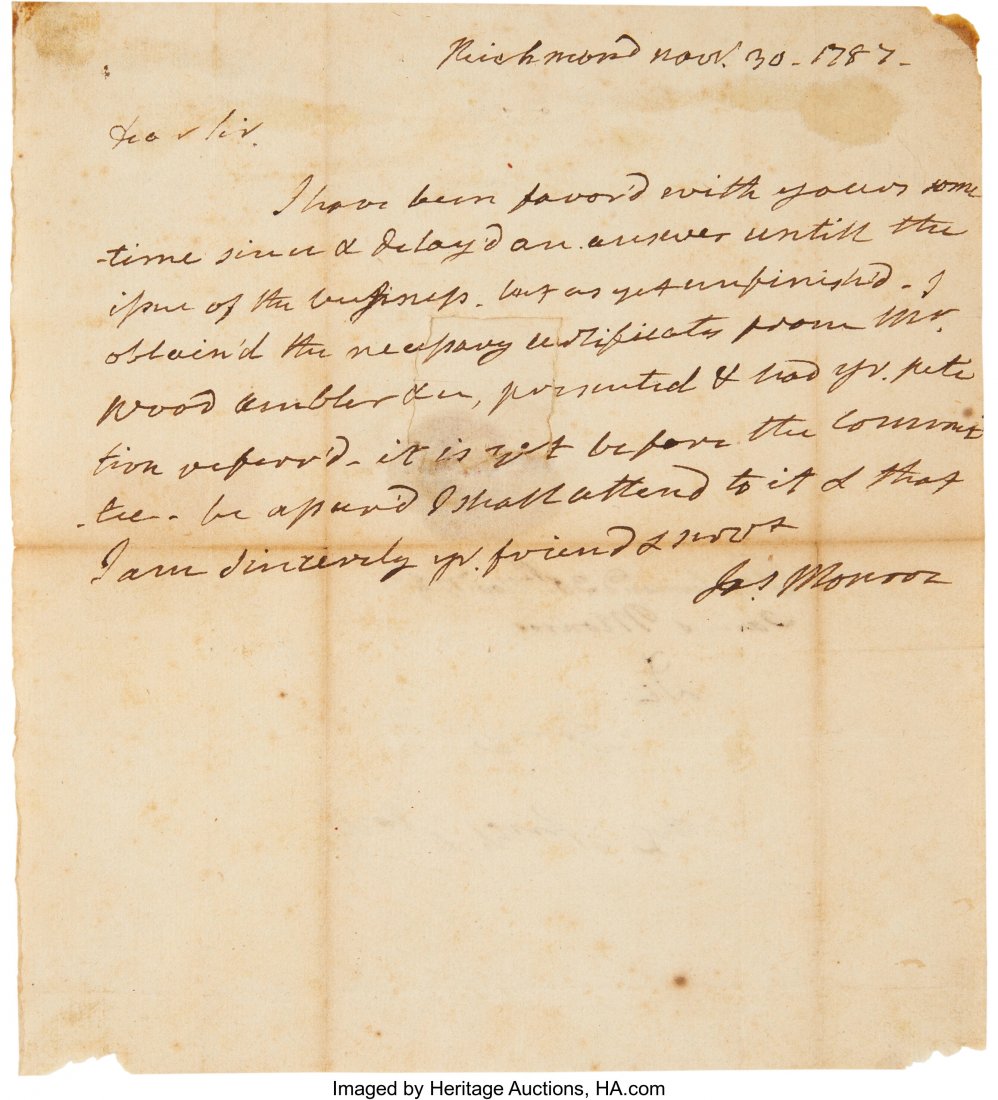 Richmond Novr. 30 - 1787 -
Dear Sir.
I have been favor'd with yours some
-time since & delay'd an answer untill the
issue of the business - but as yet unfinish'd - I
obtain'd the necessary certificates from Mr.
Wood Ambler &c, presented & had yr. peti
tion referr'd - it is yet before the commit
-tee - be assur'd I shall attend to it & that
I am sincerely yr. friend & servt
Jas Monroe
Imaged by Heritage Auctions, HA.com